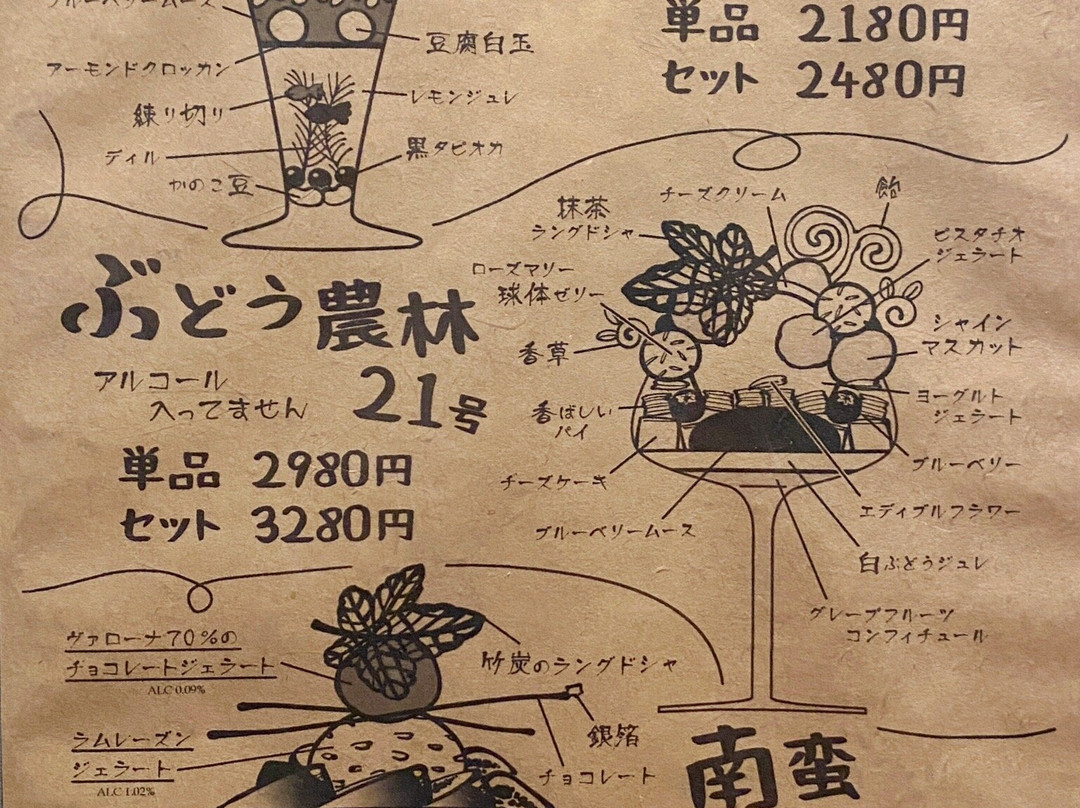 ブルーベリームース
豆腐白玉
アーモンドクロッカン
練り切り
レモンジュレ
ディル
黒タピオカ
かのこ豆
単品 2180円
セット 2480円
ぶどう農林
21号
アルコール
入ってません
単品 2980円
セット 3280円
抹茶
ラングドシャ
チーズクリーム
飴
ピスタチオ
ジェラート
ローズマリー
球体ゼリー
香草
シャイン
マスカット
香ばしい
パイ
ヨーグルト
ジェラート
チーズケーキ
ブルーベリー
ブルーベリームース
エディブルフラワー
白ぶどうジュレ
グレープフルーツ
コンフィチュール
ヴァローナ70%の
チョコレートジェラート
ALC 0.09%
竹炭のラングドシャ
銀箔
チョコレート
ラムレーズン
ジェラート
ALC 1.02%
南蛮